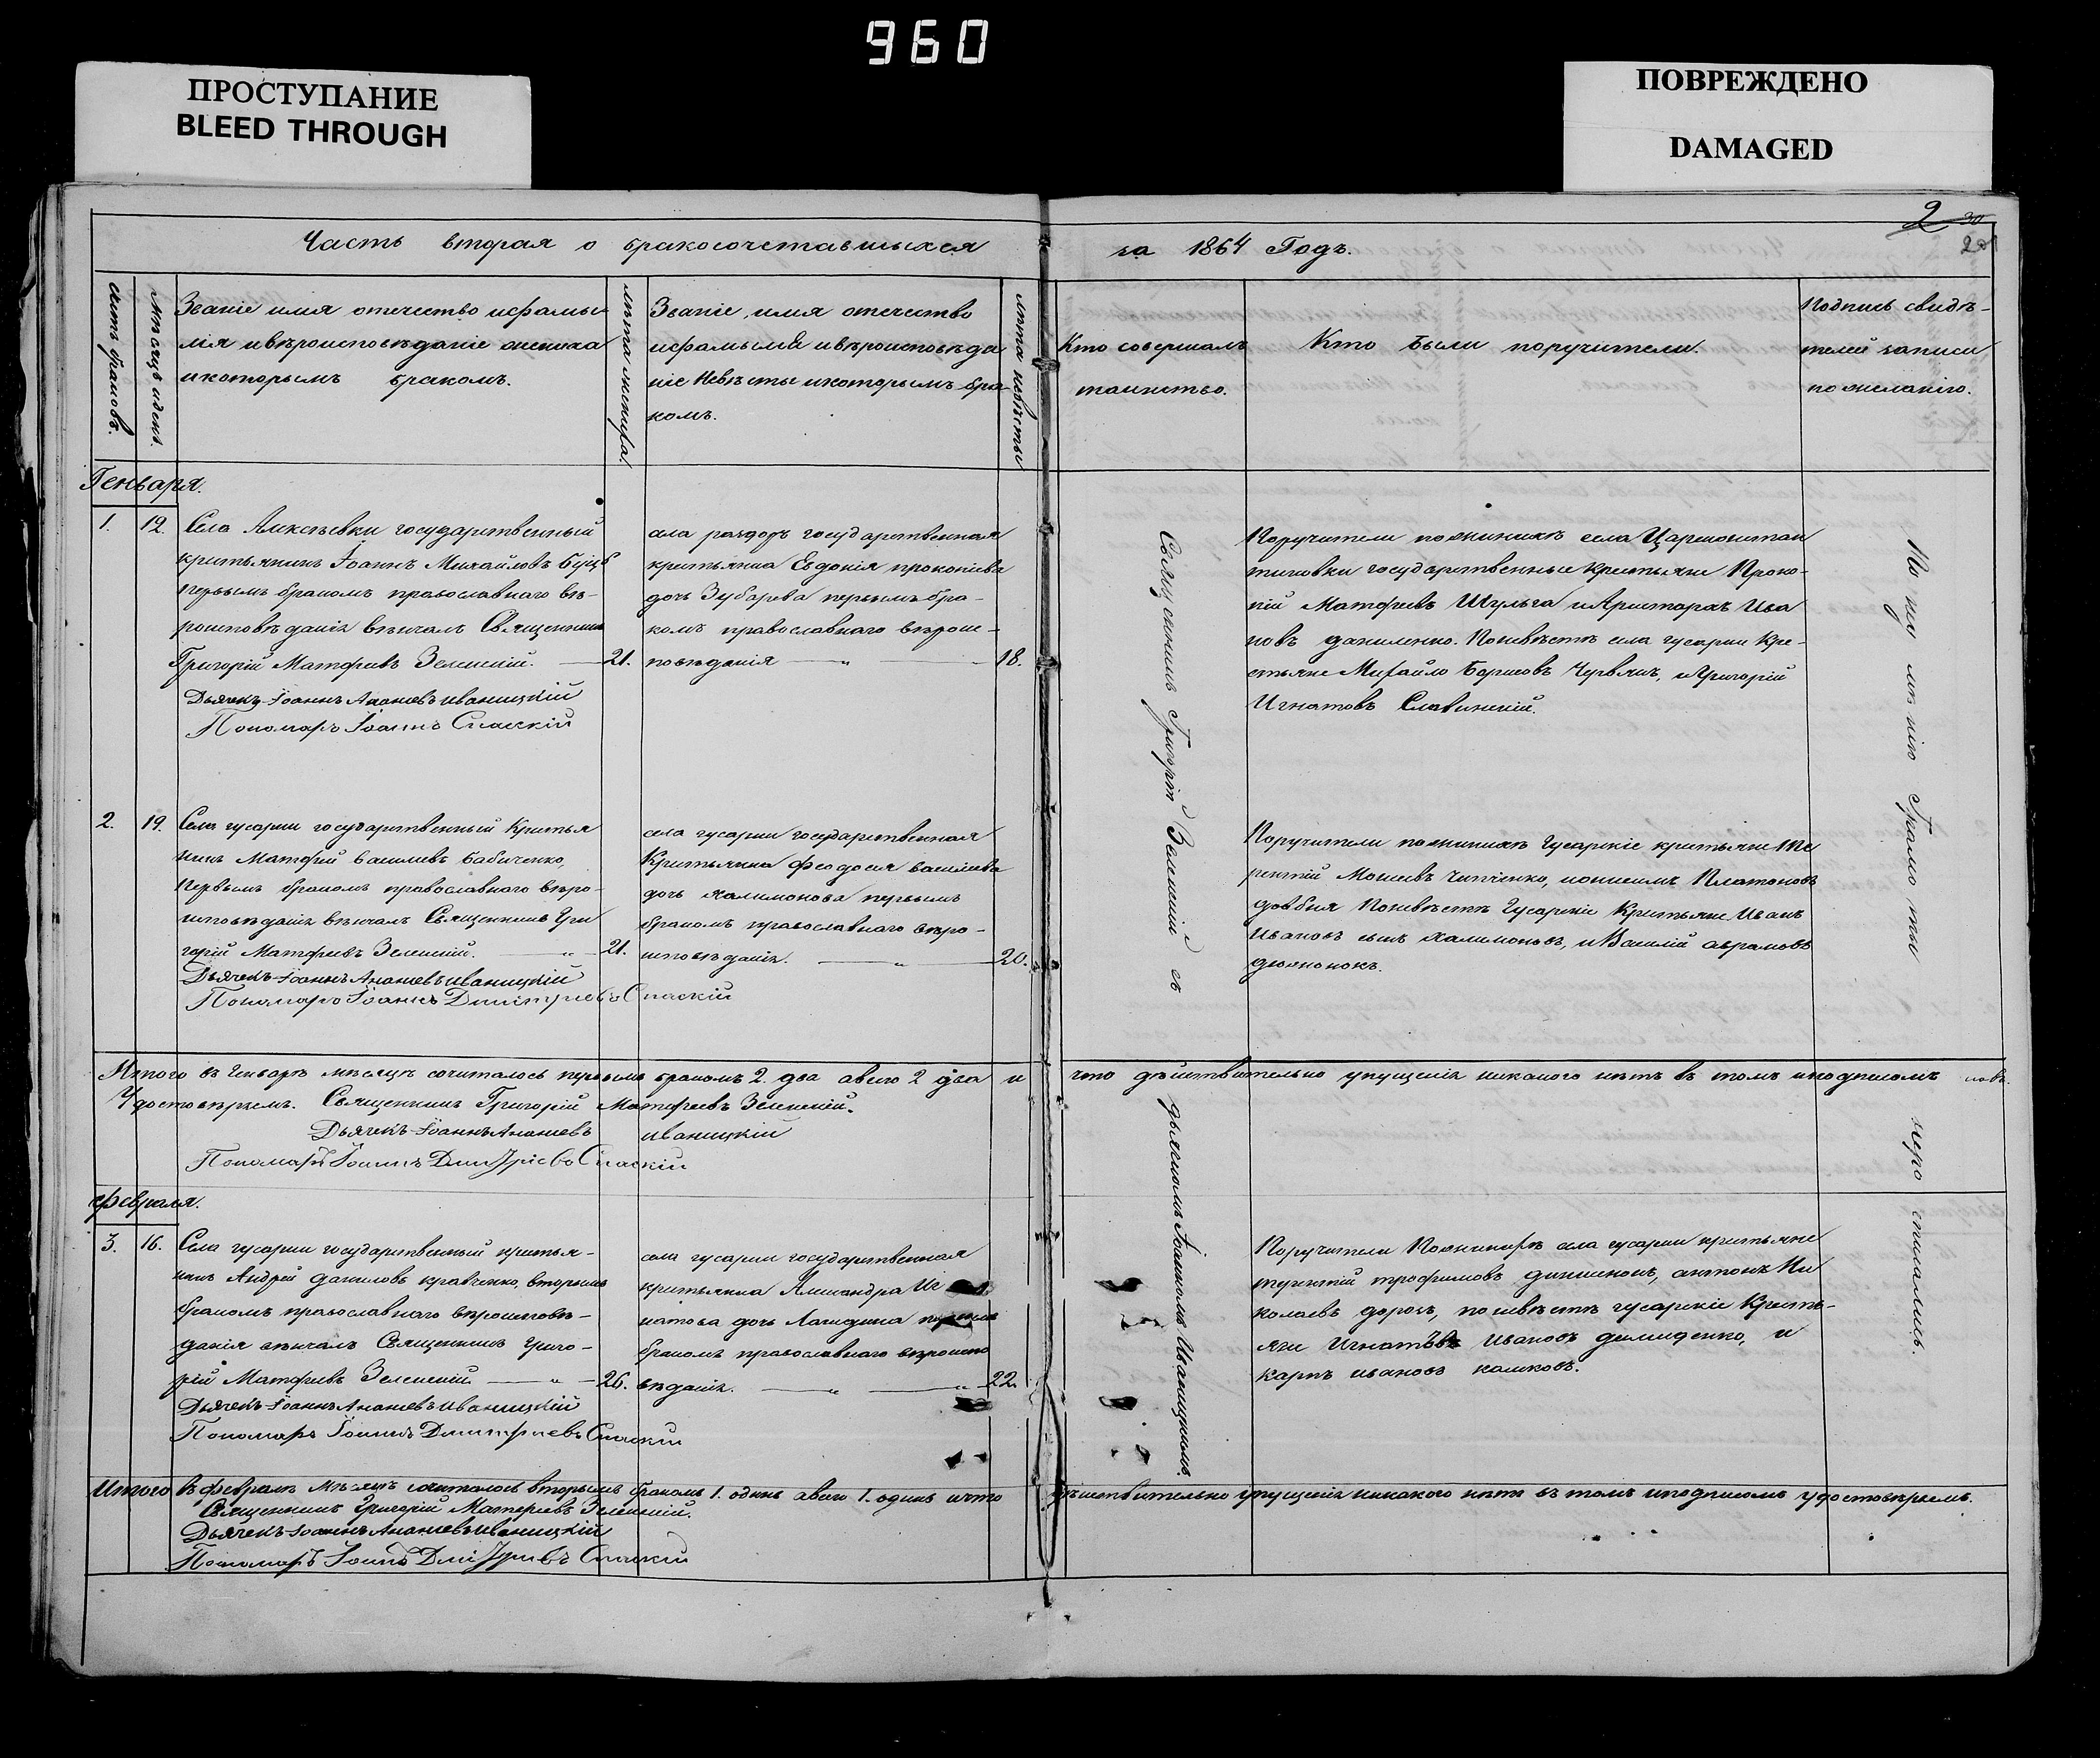 960
ПРОСТУПАНИЕ
BLEED THROUGH
ПОВРЕЖДЕНО
DAMAGED
Часть вторая о бракосочетавшихся
за 1864 Годъ.
счетъ браковъ.
мѣсяцъ и день.
Званіе имя отечество и фами
лія и вѣроисповѣданіе жениха
и которымъ бракомъ.
лѣта жениха.
Званіе, имя отечество
и фамилія и вѣроисповѣда
ніе Невѣсты и которымъ бра
комъ.
лѣта невѣсты
Кто совершалъ
таинство.
Кто были поручители.
Подпись свидѣ-
телей записи
по желанію.
Генваря.
1. 12. Села Алексѣевки государственный
крестьянинъ Іоаннъ Михайловъ
первымъ бракомъ православнаго вѣ-
роисповѣданія вѣнчалъ Священникъ
Григорій Матфеевъ Зеленскій. 21.
Дьячекъ Іоаннъ Ананіевъ Иваницкій
Пономарь Іоаннъ Спаскій
села раздоръ государственная
крестьянка Евдокія прокопіева
дочь Зубарева первымъ бра-
комъ православнаго вѣроис-
повѣданія 18.
Священникъ Григорій Зеленскій съ
Поручители по женихѣ села Царекостан
тиновки государственные крестьяне Проко-
пій Матфеевъ Шульга и Аристархъ Ива
новъ даниленко. По невѣстѣ села гусарки кре-
стьяне Михайло Борисовъ Червякъ, и Григорій
Игнатовъ Славинскій.
По не умѣнію Грамоты
2. 19. Села гусарки государственный Крестья
нинъ Матфей василіевъ бабиченко,
первымъ бракомъ православнаго вѣро-
исповѣданія вѣнчалъ Священникъ Гри
горій Матфеевъ Зеленскій. 21.
Дьячекъ Іоаннъ Ананіевъ иваницкій
Пономарь Іоаннъ Димитріевъ Спаскій
села гусарки государственная
Крестьянка феодосія василіева
дочь халимонова первымъ
бракомъ православнаго вѣро-
исповѣданія. 20.
Поручители по женихѣ Гусарскіе крестьяне Те
рентій Моисеевъ Платоновъ
довбня По невѣстѣ Гусарскіе Крестьяне Иванъ
Ивановъ сынъ халимоновъ, и Василій аврамовъ
Итого въ Генварѣ мѣсяцѣ сочиталось первымъ бракомъ 2. два а всего 2 два и что дѣйствительно упущенія никакого нѣтъ въ томъ и подписомъ
Удостовѣряемъ. Священникъ Григорій Матфеевъ Зеленскій.
Дьячекъ Іоаннъ Ананіевъ иваницкій
Пономарь Іоаннъ Димитріевъ Спаскій
февраля.
3. 16. Села гусарки государственный крестья-
нинъ Андрей даниловъ кравченко, вторымъ
бракомъ православнаго вѣроисповѣ-
данія вѣнчалъ Священникъ Григо-
рій Матфеевъ Зеленскій 26.
Дьячекъ Іоаннъ Ананіевъ иваницкій
Пономарь Іоаннъ Димитріевъ Спаскій
села гусарки государственная
крестьянка Александра Иг
натова дочь первымъ
бракомъ православнаго вѣроиспо
вѣданія. 22.
дьячкомъ Іоанномъ Иваницкимъ.
Поручители По женихѣ села гусарки крестьяне
терентій трофимовъ антонъ Ни
колаевъ дорохъ, по невѣстѣ гусарскіе Кресть-
яне Игнатъ Ивановъ демиденко, и
карпъ ивановъ
неро списались.
Итого въ февралѣ мѣсяцѣ сочиталось вторымъ бракомъ 1. одинъ а всего 1. одинъ и что дѣйствительно упущенія никакого нѣтъ въ томъ и подписомъ удостовѣряемъ.
Священникъ Григорій Матфеевъ Зеленскій.
Дьячекъ Іоаннъ Ананіевъ иваницкій
Пономарь Іоаннъ Димитріевъ Спаскій